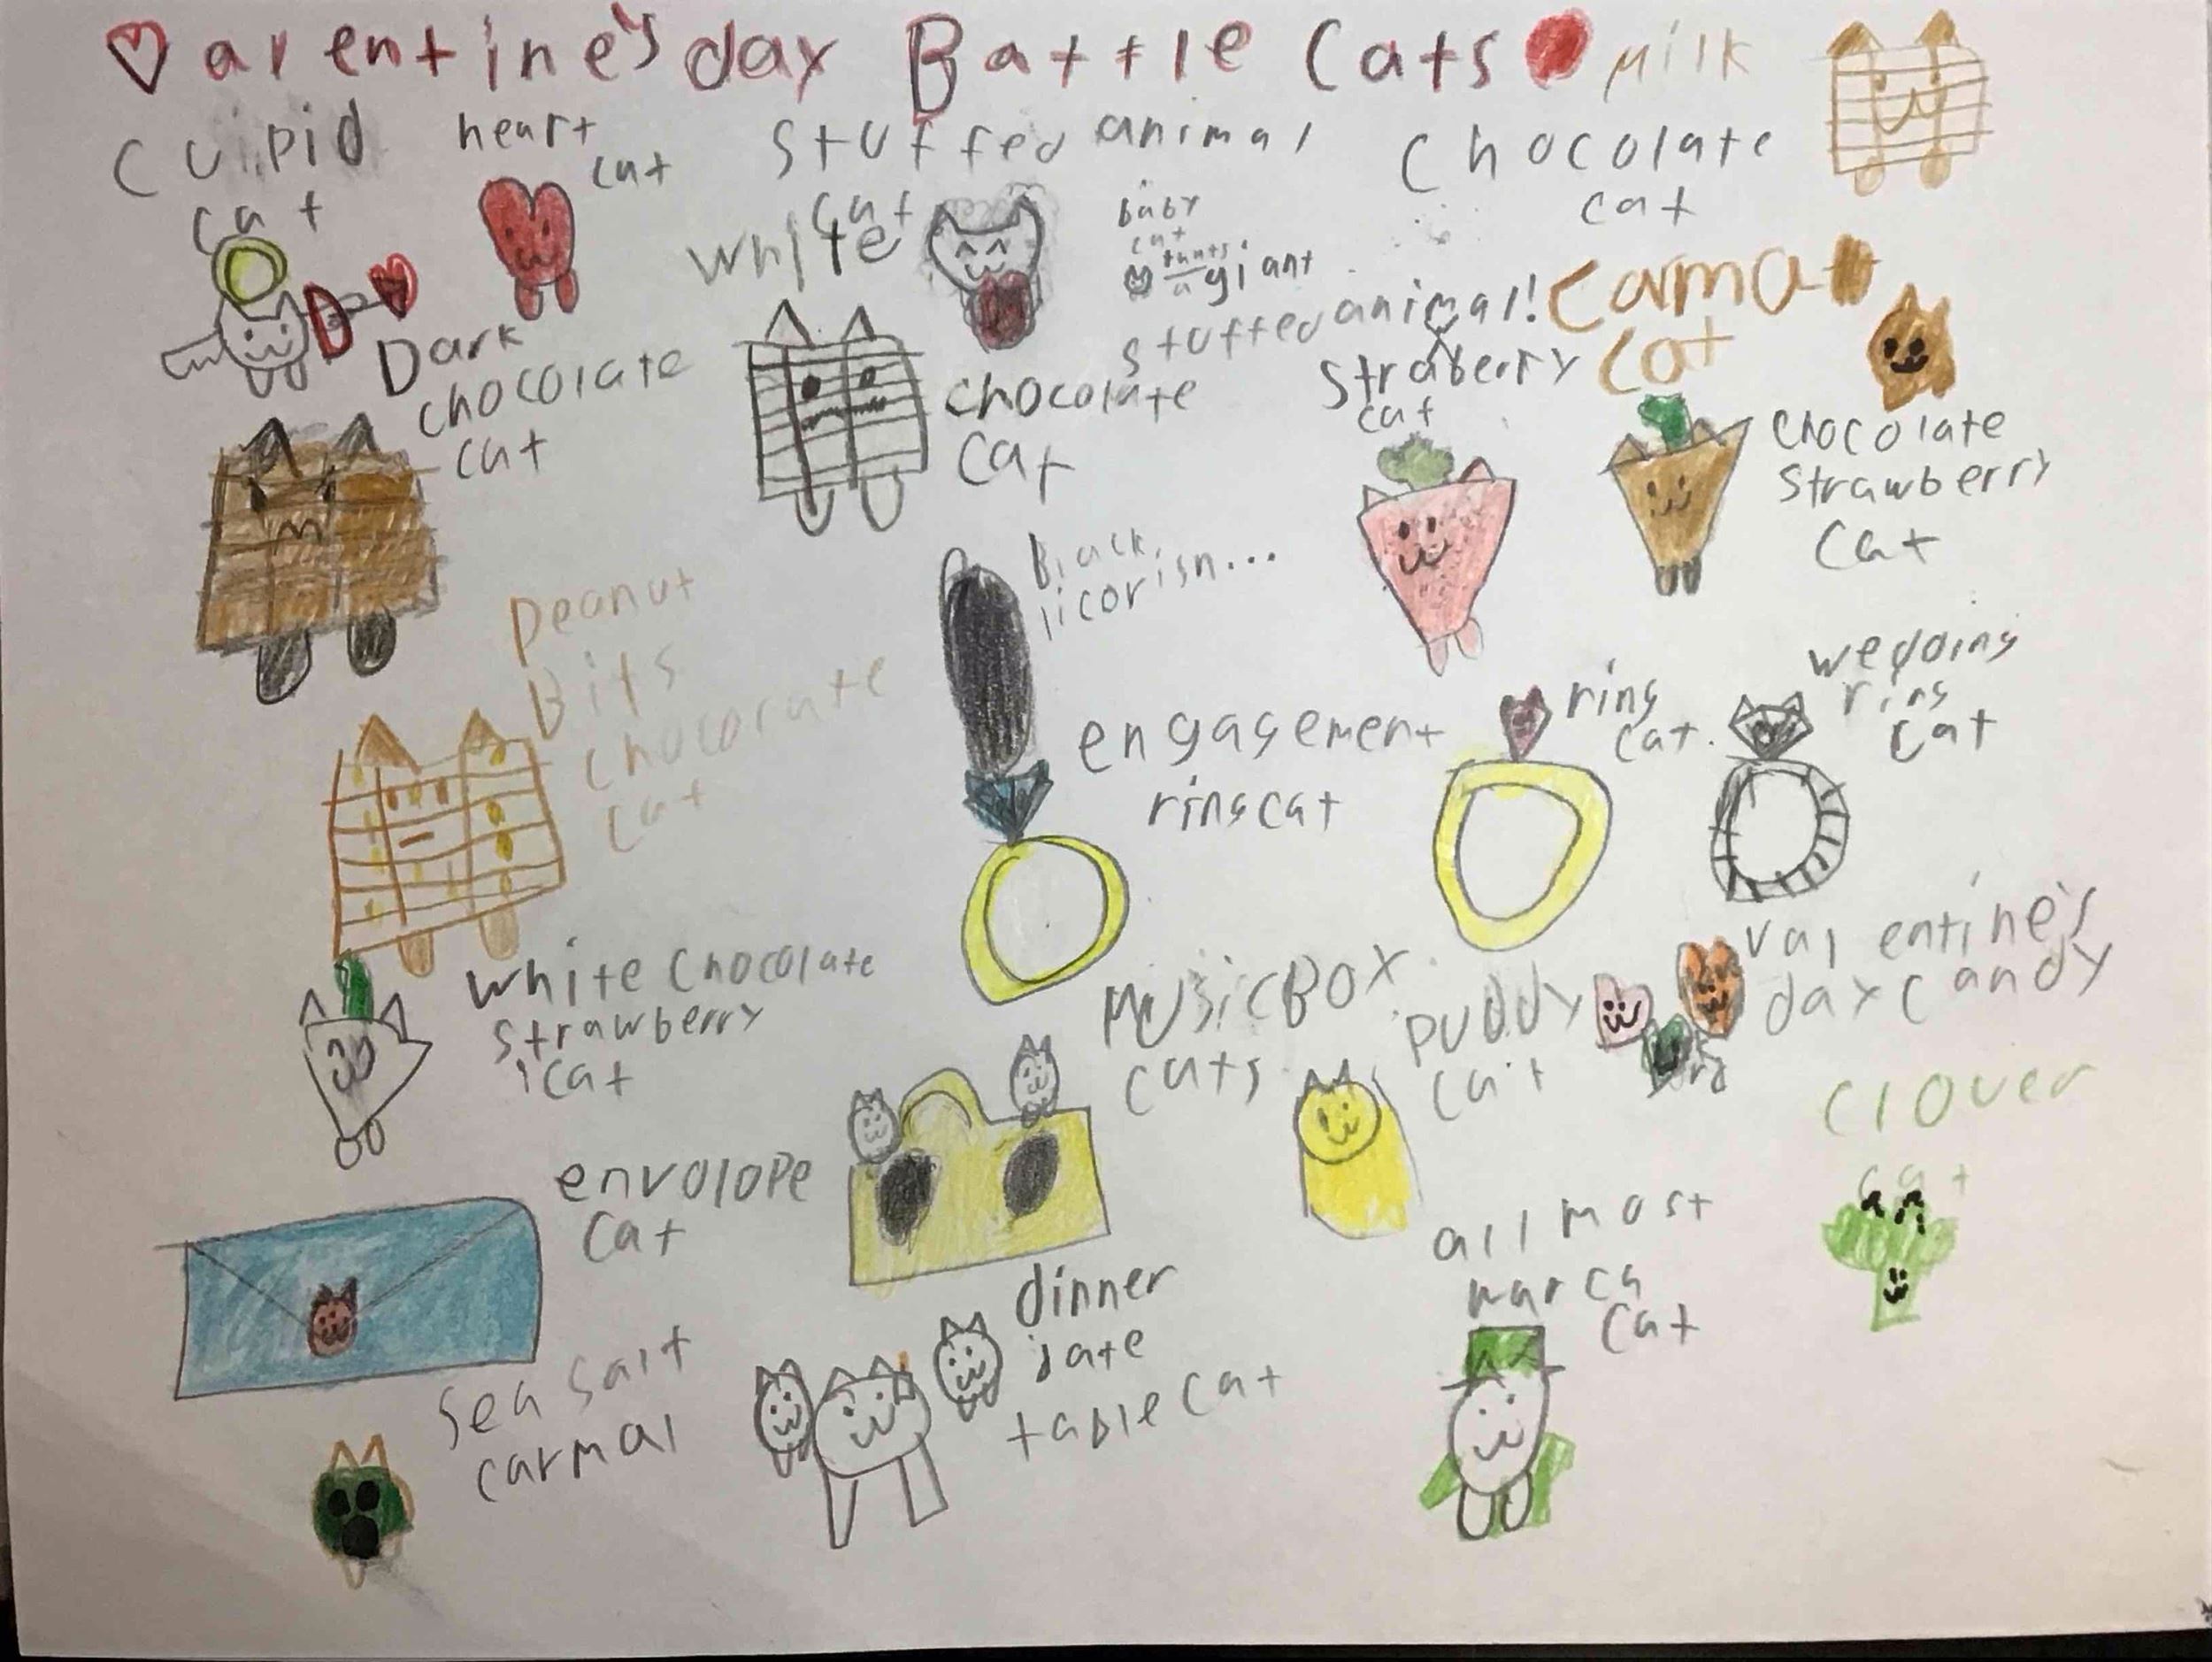 ♡alentine's day Battle Cats
Milk
Chocolate
cat
Cupid
cat
heart
cat
Stuffed animal
cat
baby
cat
wants
a giant
stuffed animal!
Carmal
cat
Dark
chocolate
cat
White
chocolate
cat
Straberry
cat
chocolate
strawberry
cat
Black
licorish...
Peanut
Bits
chocorate
cat
engagement
ring cat
ring
cat.
wedding
ring
cat
White Chocolate
strawberry
cat
Music Box
cats
Puddy
cat
valentine's
day candy
envolope
cat
clover
cat
all most
march
cat
dinner
date
table cat
Sea Salt
carmal